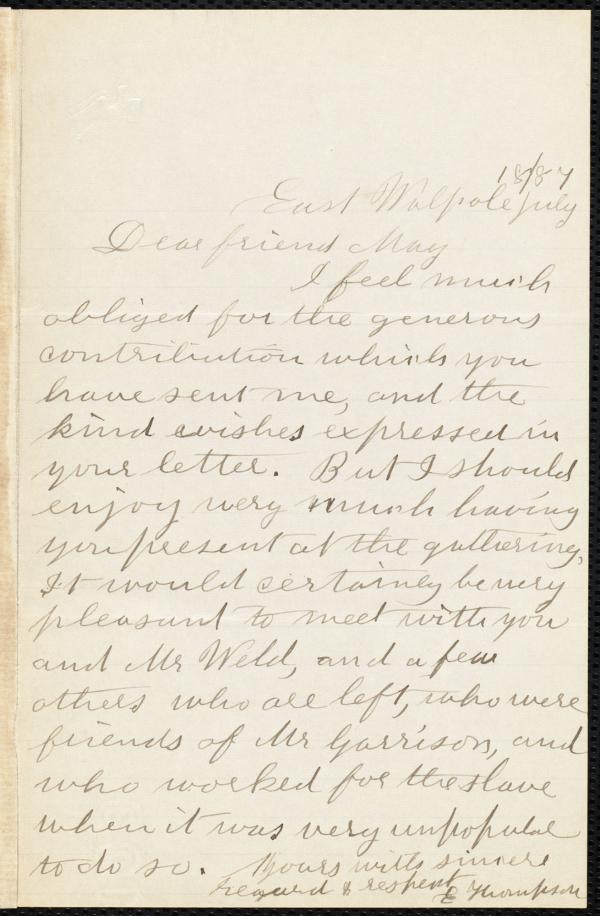 1887
East Walpole July
Dear friend May
I feel much
obliged for the generous
contribution which you
have sent me, and the
kind wishes expressed in
your letter. But I should
enjoy very much having
you present at the gathering,
It would certainly be very
pleasant to meet with you
and Mr Weld, and a few
others who are left, who were
friends of Mr Garrison, and
who worked for the slave
when it was very unpopular
to do so. Yours with sincere
regard & respect
E Thompson